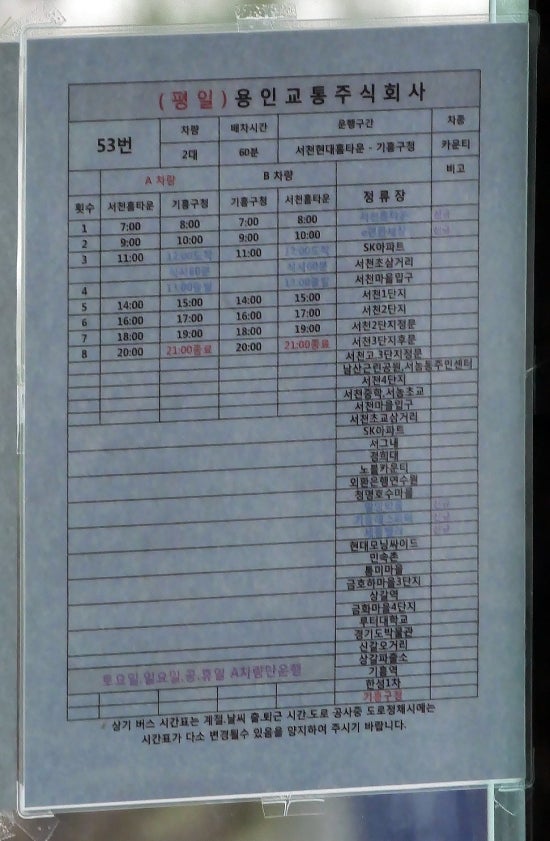 (평일)용인교통주식회사
53번 차량 배차시간 운행구간 차종
2대 60분 서천현대홈타운 - 기흥구청 카운티
A 차량 B 차량 비고
횟수 서천홈타운 기흥구청 기흥구청 서천홈타운 정 류 장
1 7:00 8:00 7:00 8:00 서천홈타운
2 9:00 10:00 9:00 10:00 e편한세상
3 11:00 12:00도착 11:00 12:00도착 SK아파트
식사60분 식사60분 서천초삼거리
4 13:00출발 13:00출발 서천마을입구
5 14:00 15:00 14:00 15:00 서천1단지
6 16:00 17:00 16:00 17:00 서천2단지
7 18:00 19:00 18:00 19:00 서천2단지정문
8 20:00 21:00종료 20:00 21:00종료 서천3단지후문
서천고.3단지정문
남산근린공원,서농동주민센터
서천4단지
서천중학,서농초교
서천마을입구
서천초교삼거리
SK아파트
서그내
경희대
노블카운티
외환은행연수원
청명호수마을
현대모닝싸이드
민속촌
통미마을
금호하마을3단지
상갈역
금화마을4단지
루터대학교
경기도박물관
신갈오거리
상갈파출소
기흥역
한성1차
기흥구청
토요일.일요일.공.휴일 A차량만운행
상기 버스 시간표는 계절.날씨 출.퇴근 시간.도로 공사중 도로정체시에는
시간표가 다소 변경될수 있음을 양지하여 주시기 바랍니다.